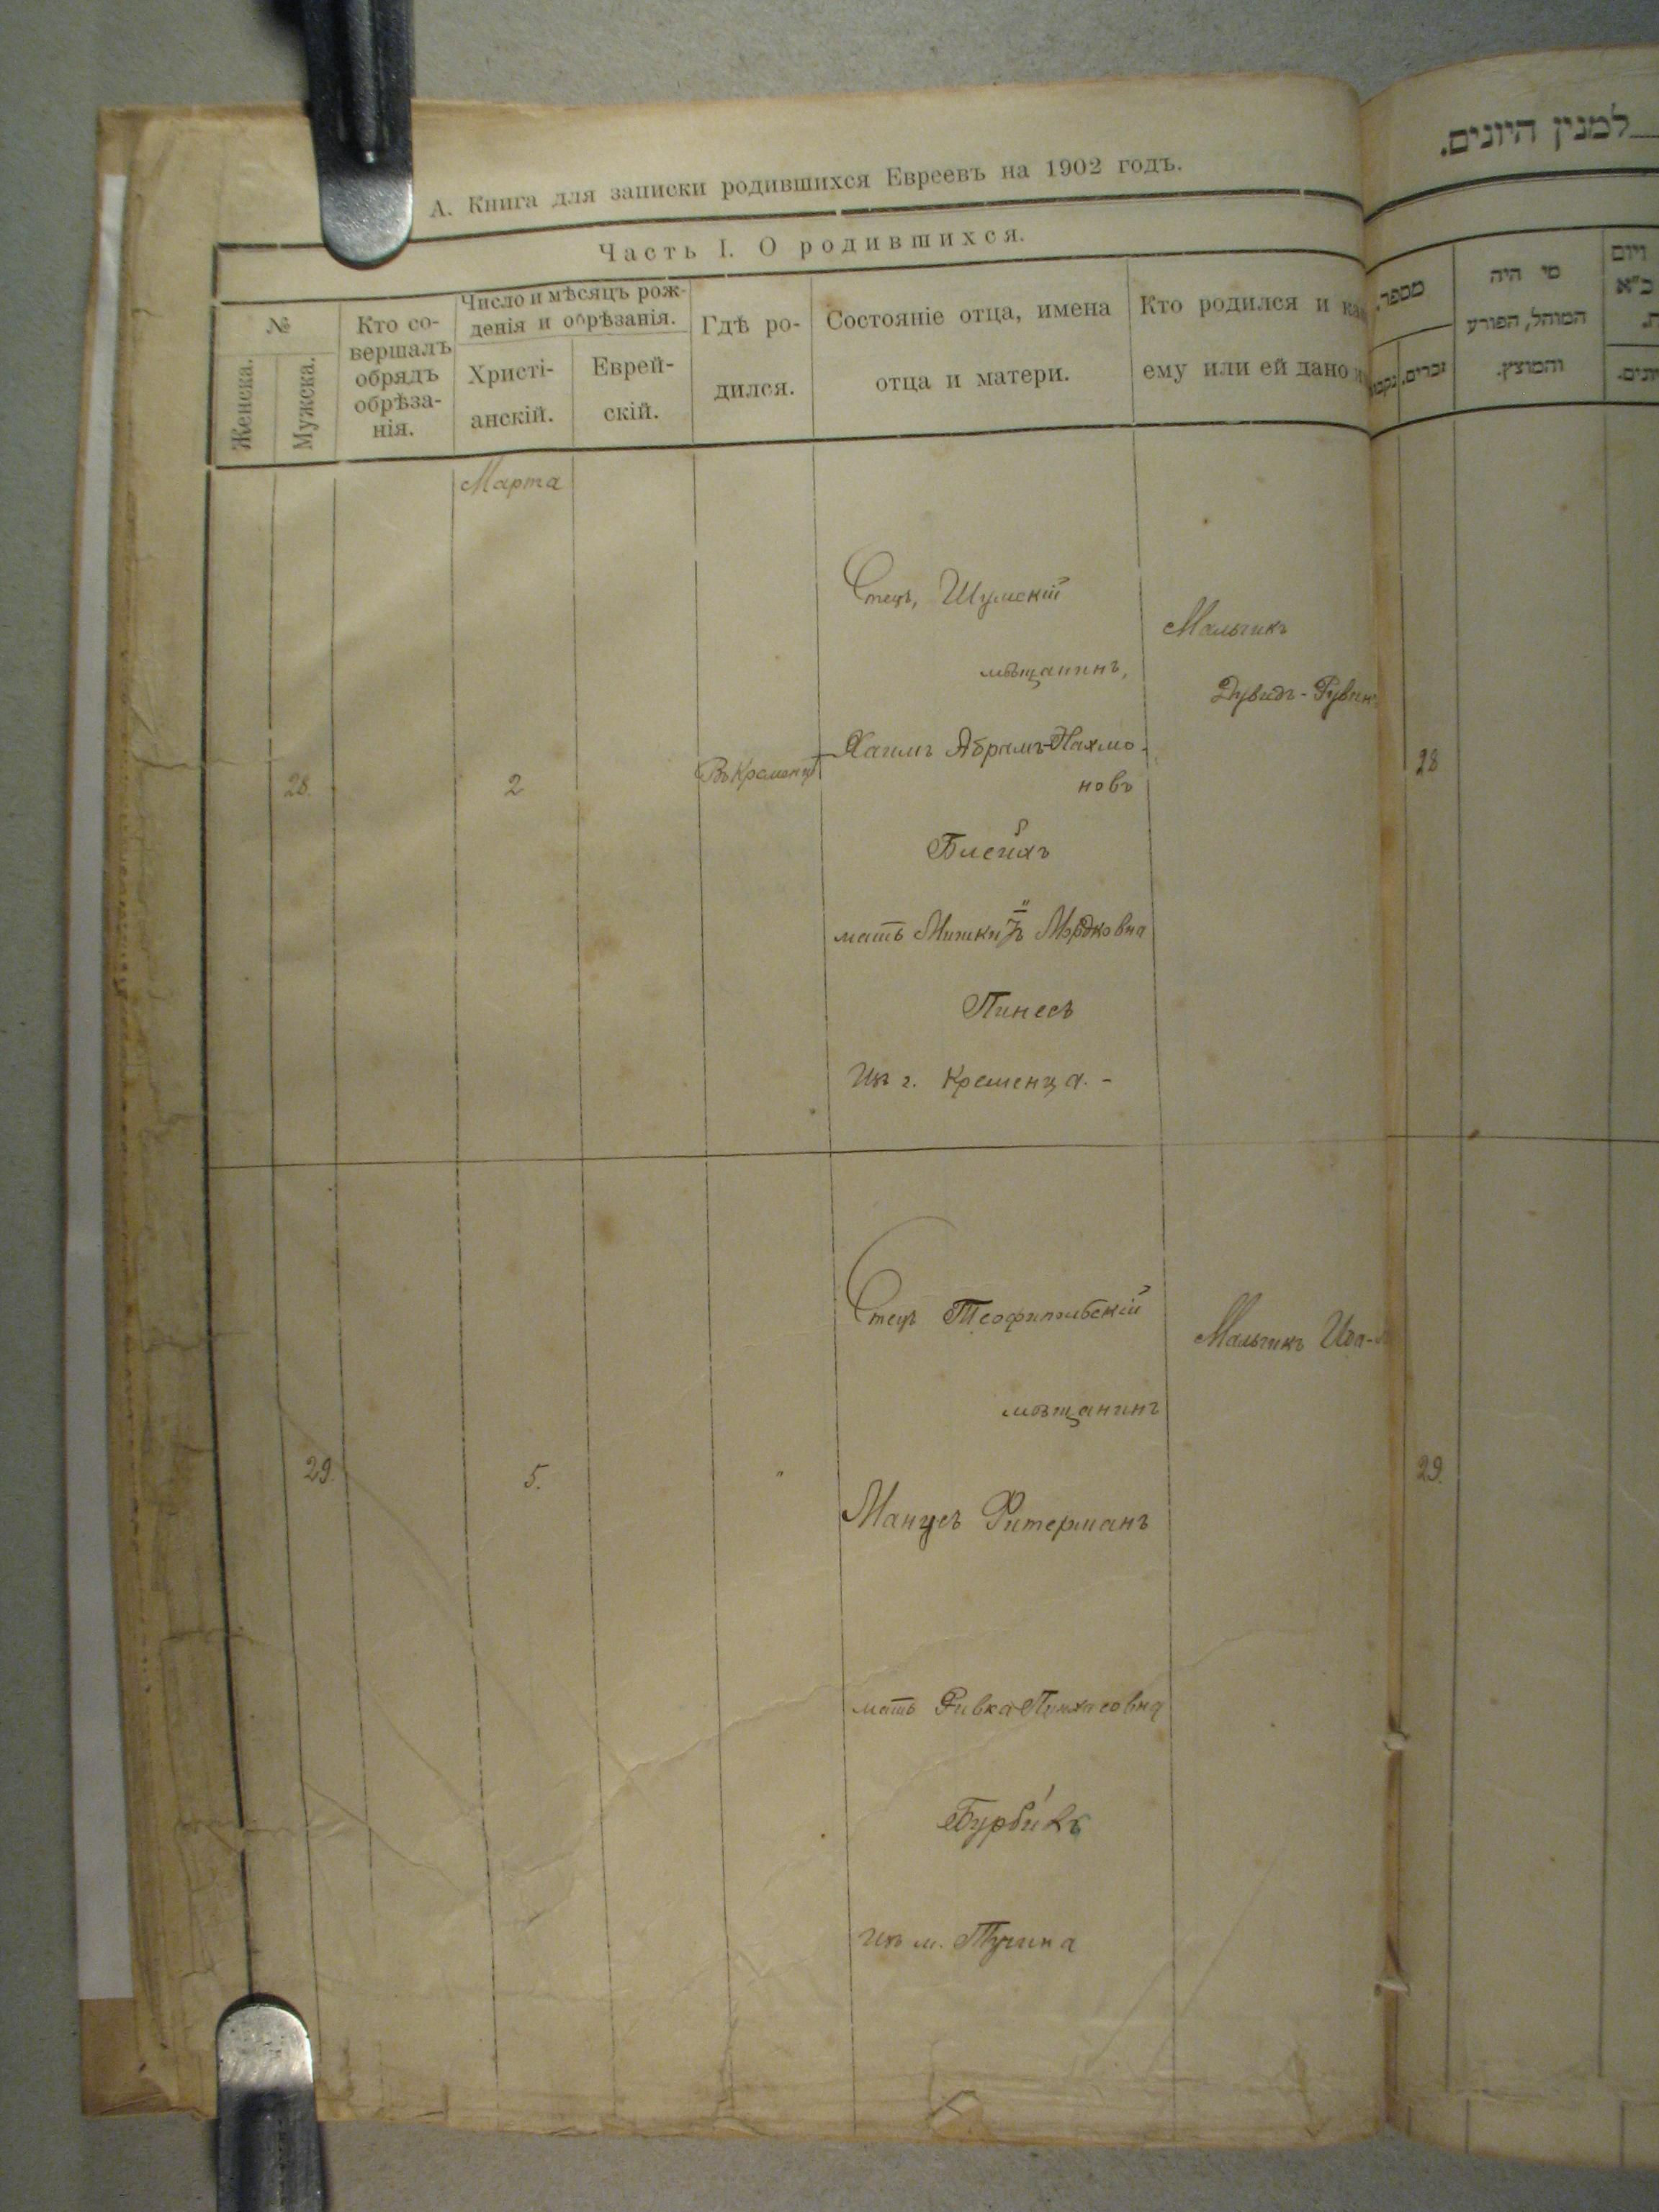 А. Книга для записки родившихся Евреевъ на 1902 годъ.
Часть I. О родившихся.
№
Женска.
Мужска.
Кто со-
вершалъ
обрядъ
обрѣза-
нія.
Число и мѣсяцъ рож-
денія и обрѣзанія.
Христі-
анскій.
Еврей-
скій.
Гдѣ ро-
дился.
Состояніе отца, имена
отца и матери.
Кто родился и как
ему или ей дано
Марта
28.
2
Въ Кременцѣ
Отецъ, Шумскій
мѣщанинъ,
Хаимъ Абрамъ-Нахмо-
новъ
мать Мордковна
Пинесъ
Из г. Кременца. -
Мальчикъ
Дувидъ-Рувин
29.
5.
"
Отецъ Теофипольскій
мѣщанинъ
Манусъ Фитерманъ
мать Ривка Пинхасовна
Из м. Тучина
Мальчикъ
למנין היונים.
מספר
זכרים.
מי היה
המוהל, הפורע
והמוצץ.
ויום
28
29.